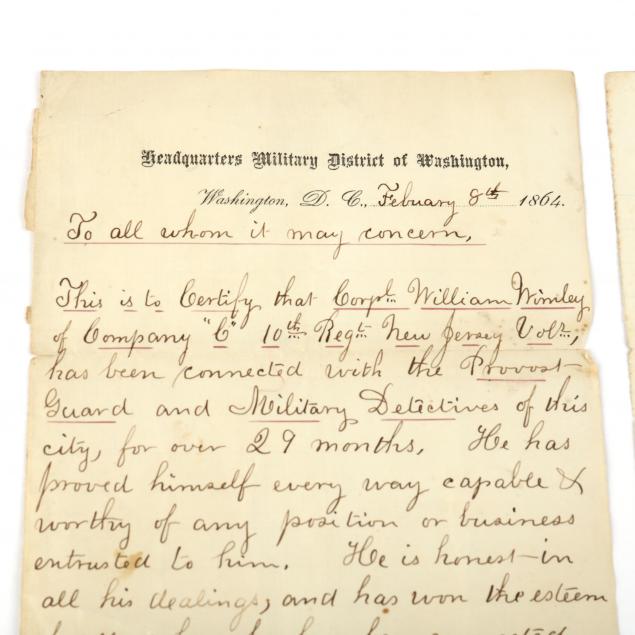 Headquarters Military District of Washington,
Washington, D. C., Febuary 8th 1864.
To all whom it may concern,
This is to Certify that Corpl William Wimley
of Company "C" 10th Regt New Jersey Vols,
has been connected with the Provost
Guard and Military Detectives of this
city, for over 29 months. He has
proved himself every way capable &
worthy of any position or business
entrusted to him. He is honest in
all his dealings, and has won the esteem